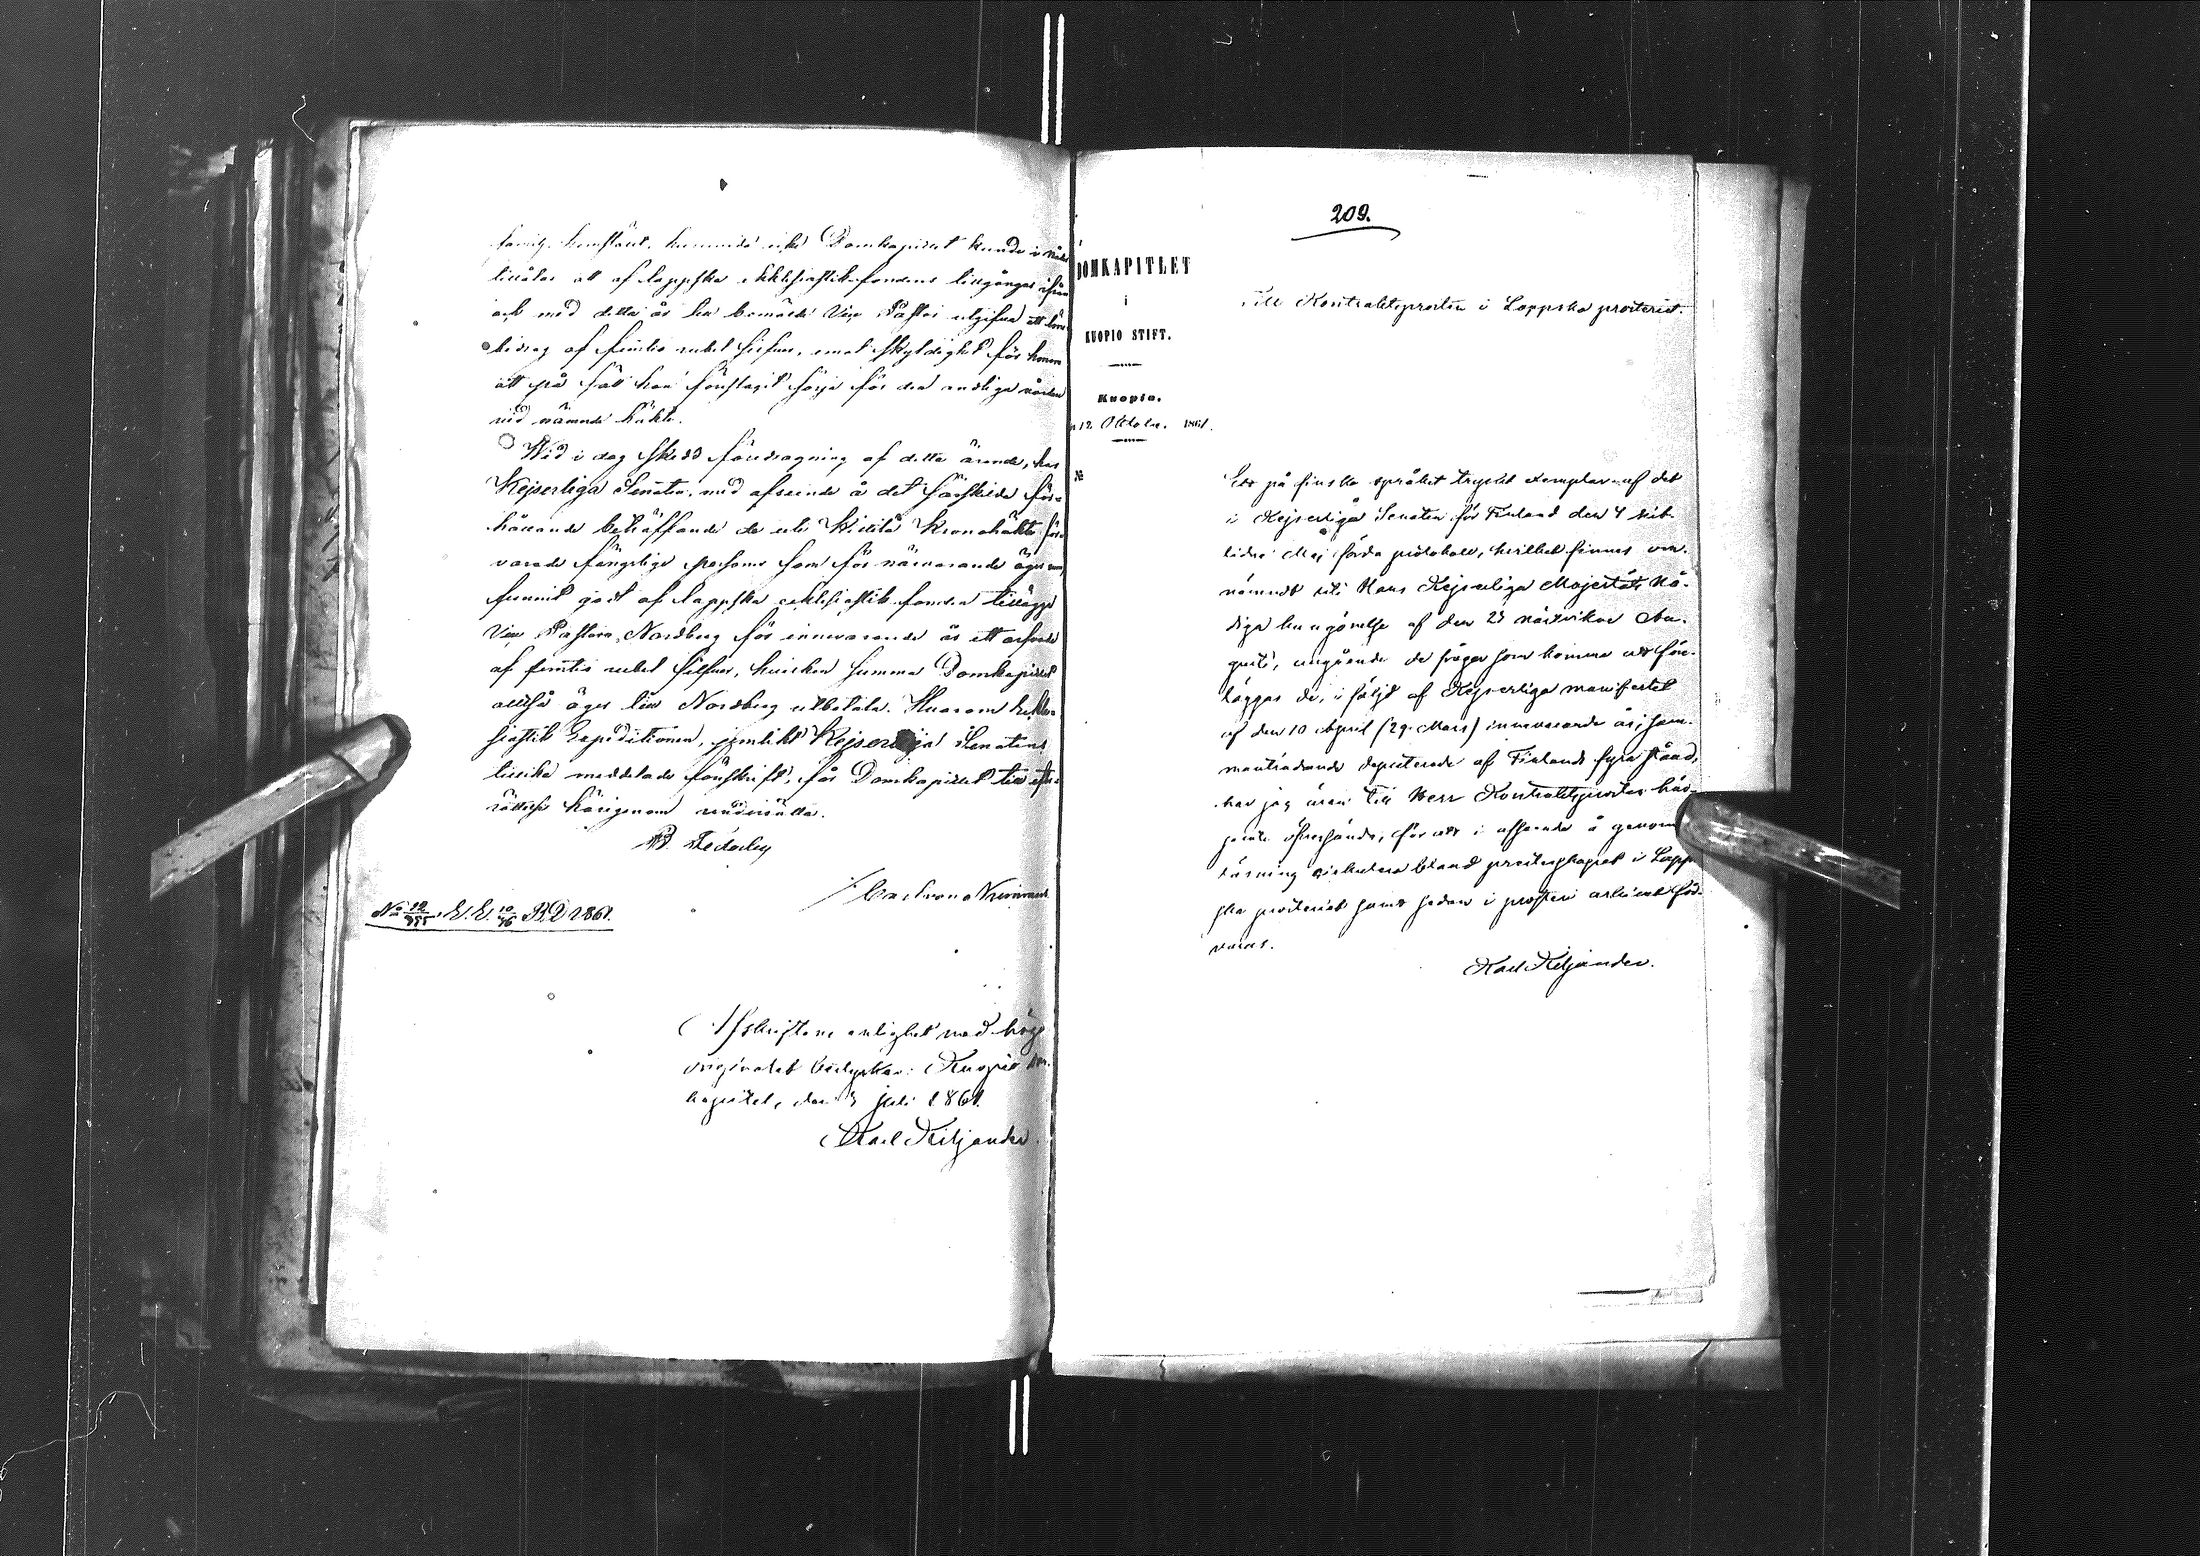 hemstält, huruvida icke Domkapitlet kunde i nåder
tillåtas att af lappska ekklesiastik-fondens tillgångar ifrån
och med detta år lta bemälde Vice Pastor utgifva ett löne
bidrag af femtio rubel silfver, emot skyldighet för honom
att på sätt han föreslagit sörja för den andliga vården
vid nämnde häkte.
Wid i dag skedd föredragning af detta ärende, har
Kejserliga Senaten, med afseende å det särskilda för-
hållande beträffande de uti Kittilä Kronohäkte för-
varade fängslige personer som för närvarande äger rum,
funnit godt af lappska ecklesiastik-fonden tillägga
Vice Pastorn Nordberg för innevarande år ett arfvode
af femtio rubel silfver, hvilken summa Domkapitlet
alltså äger låta Nordberg utbetala. Hvarom Ekkle-
siastik Expeditionen, jemlikt Kejserliga Senatens
tillika meddelade föreskrift, får Domkapitlet till efter-
rättelse härigenom underrätta.
Afskriftens enlighet med höga
originalet betygar: Kuopio Dom-
kapitel, den 3 Juli 1861.
Karl Kiljander.
209.
DOMKAPITLET
i
KUOPIO STIFT.
Kuopio.
n 12 Oktober. 1861.
№
Till Kontraktsprosten i Lappska prosteriet.
Ett på finska språket tryckt exemplar af det
i Kejserliga Senaten för Finland den 4 sist-
lidne Maj förda protokoll, hvilket finnes om-
nämndt uti Hans Kejserliga Majestäts Nå-
diga kungörelse af den 23 nästvikne Au-
gusti, angående de frågor som komma att före-
läggas de, i följd af Kejserliga manifestet
af den 10 April (29 Mars) innevarande år, sam-
manträdande deputerade af Finlands fyra stånd,
har jag äran till Herr Kontraktsprosten här-
jemte öfversända, för att i afseende å genom
läsning cirkulera bland presterskapet i Lapp-
ska prosteriet samt sedan i prosteri arkivet för-
varas.
Karl Kiljander.